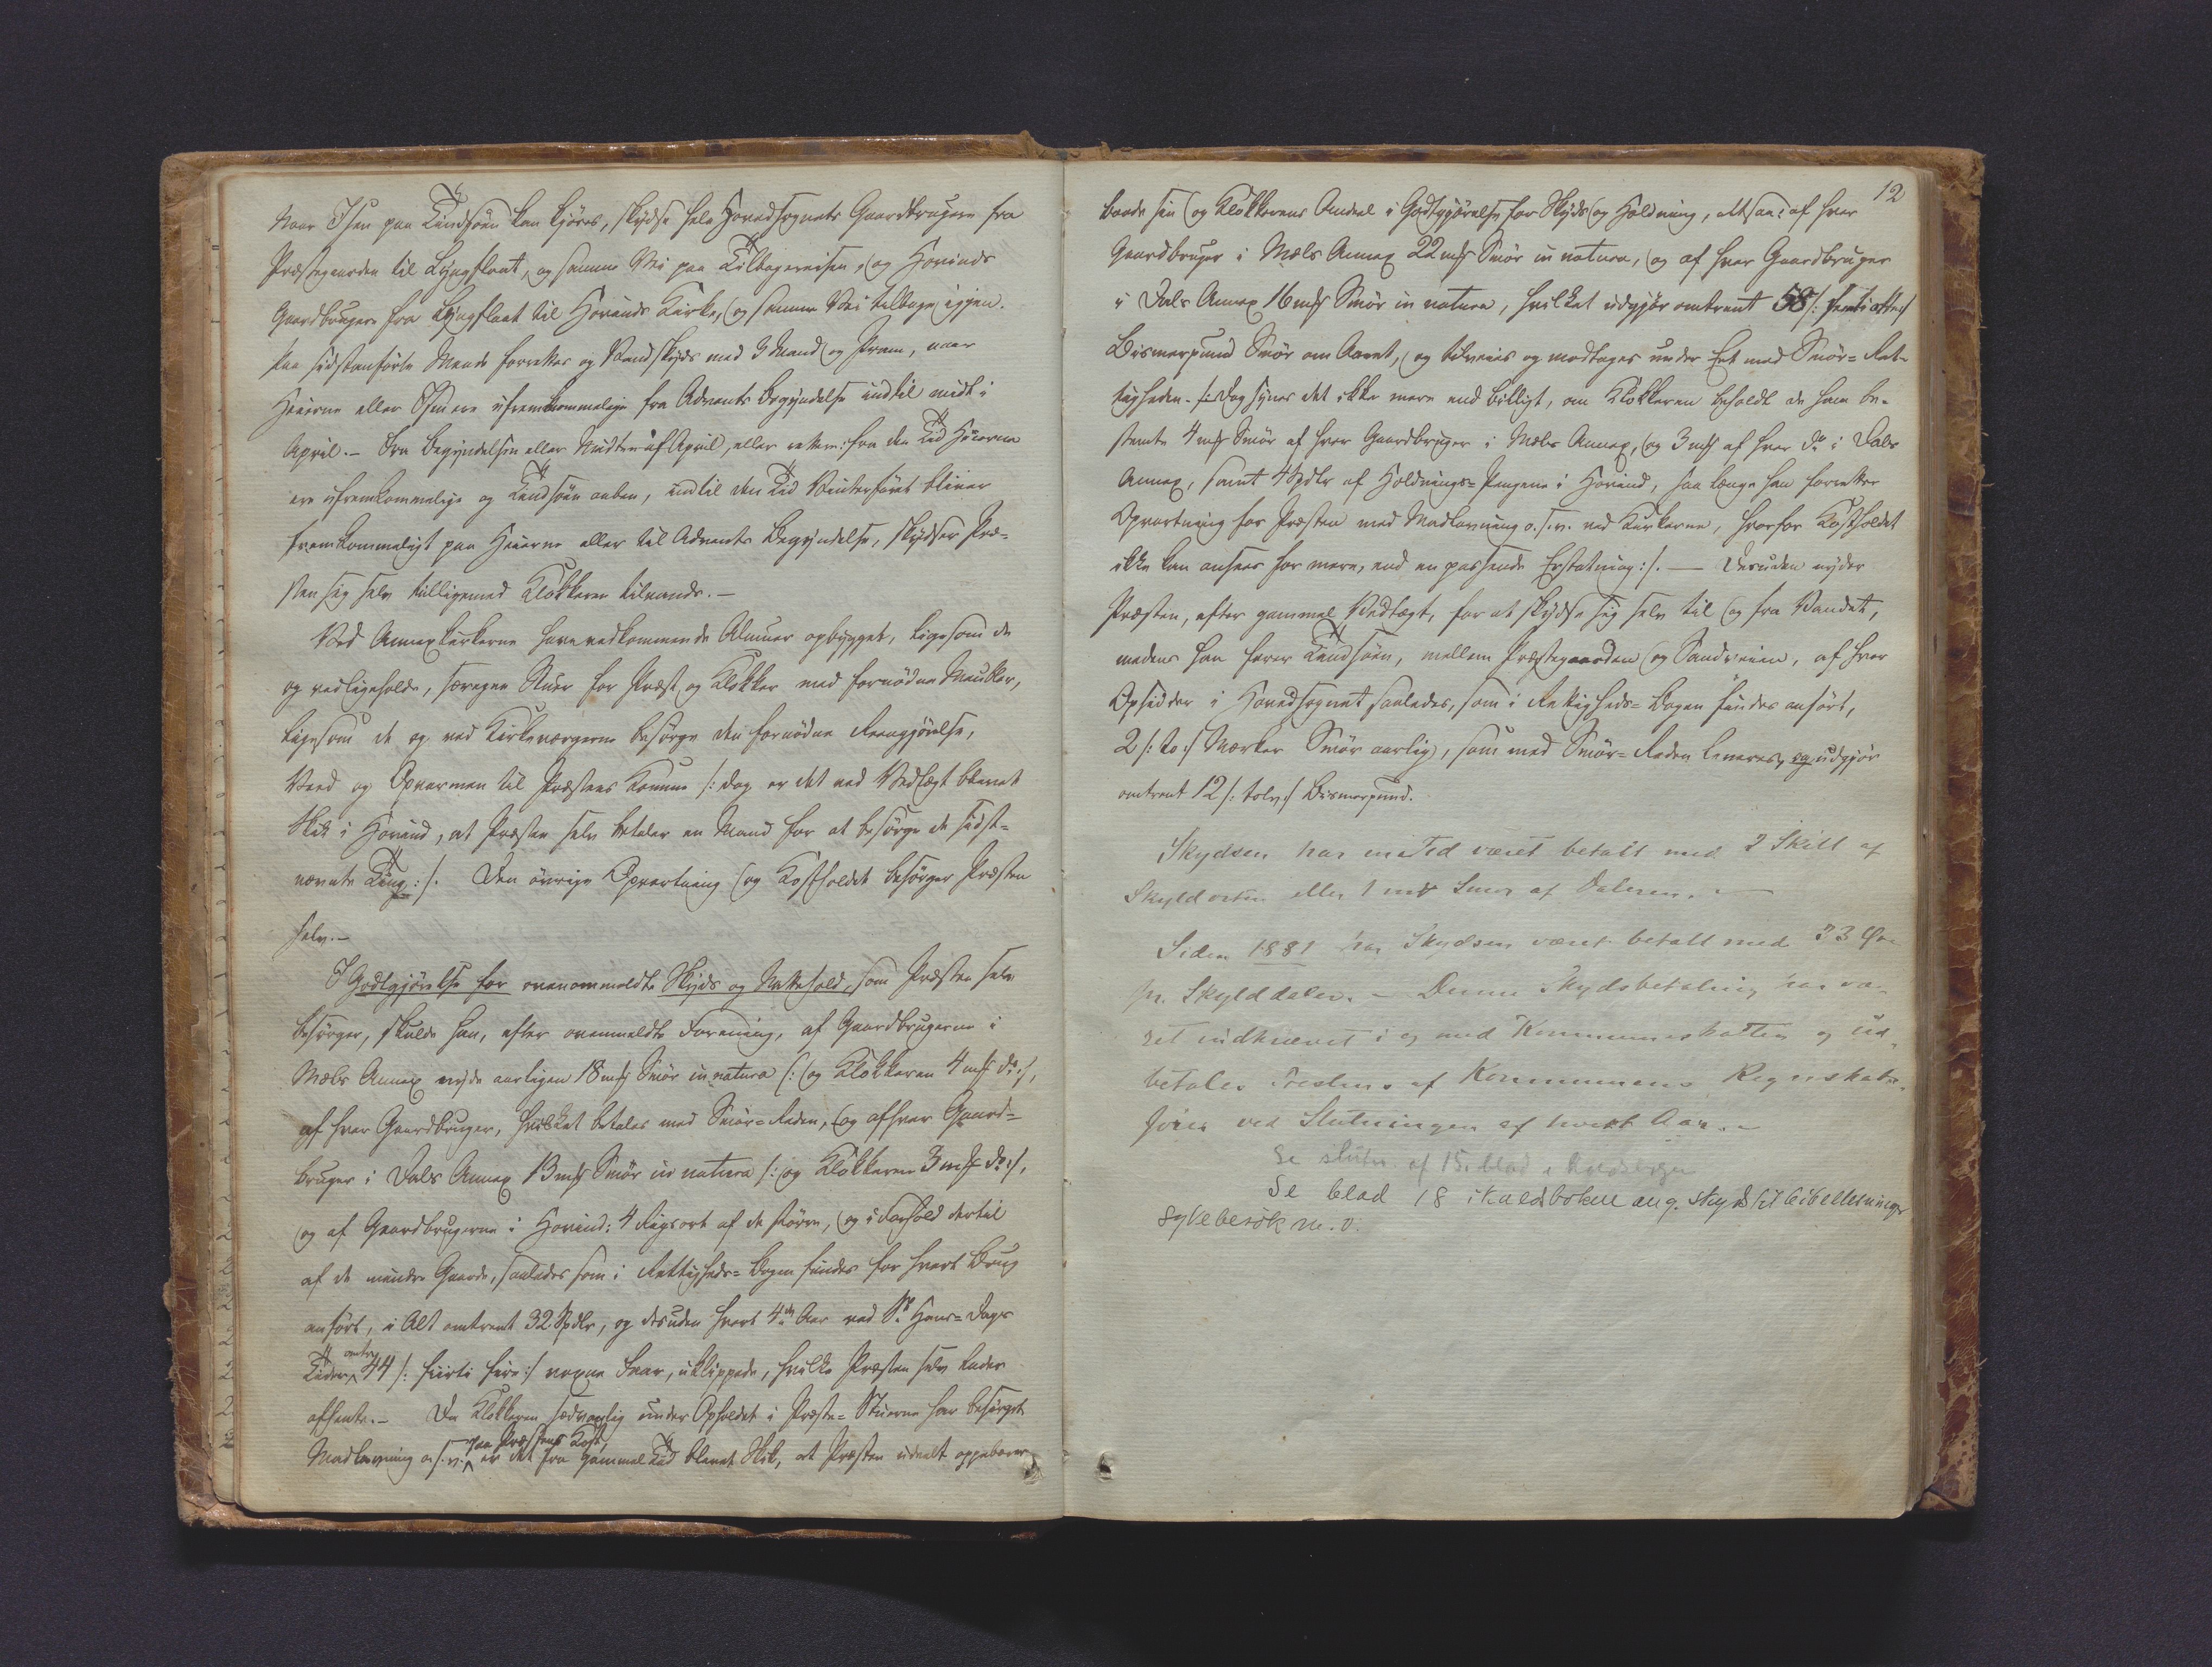 Naar Isen paa Tindsöen kan kjöres, skydse hele Hovedsognets Gaardbrugere fra
Præstegaarden til Lyngflaat, og samme Vei paa Tilbagereisen, og Hovinds
Gaardbrugere fra Lyngflaat til Hovinds Kirke, og samme Vei tilbage igjen.
Paa sidstanförte Maade forrettes og Vandskyds med 3 Mand og Pram, naar
Heierne eller Isen ere ufremkommelige fra Advents Begyndelse indtil midt i
April. – Fra Begyndelsen eller Midten af April, eller rettere: fra den Tid Heierne
ere ufremkommelige og Tindsöen aaben, indtil den Tid Vinterföret bliver
fremkommeligt paa Heierne eller til Advents Begyndelse, skydser Præ-
sten sig selv tilligemed Klokkeren tilvands. –
Ved Annexkirkerne have vedkommende Almuer opbygget, ligesom de
og vedligeholde, særegne Stuer for Præst og Klokker med fornödne Meubler,
ligesom de og ved Kirkeværgerne besörge den fornödne Reengjörelse,
Veed og Opvarmen til Præstens Komme /: dog er det ved Vedtægt blevet
Skik i Hovind, at Præsten selv betaler en Mand for at besörge de sidst-
nævnte Ting :/. Den övrige Opvartning og Kostholdet besörger Præsten
selv. –
I Godtgjörelse for ovenommeldte Skyds og Nattehold, som Præsten selv
besörger, skulde han, efter ovenmeldte Forening, af Gaardbrugerne i
Mæls Annex nyde aarligen 18 mk Smör in natura /: og Klokkeren 4 mk do :/,
af hver Gaardbruger, hvilket betales med Smör-Reden, og af hver Gaard-
bruger i Dals Annex 13 mk Smör in natura /: og Klokkeren 3 mk do :/,
og af Gaardbrugerne i Hovind: 4 Rigsort af de större, og i Forhold dertil
af de mindre Gaarde, saaledes som i Rettigheds-Bogen findes for hvert Brug
anfört, i Alt omtrent 32 Spdlr, og desuden hvert 4de Aar ved St. Hans-Dags
Tider, omtr. 44 /: fiirti fire :/ voxne Faar, uklippede, hvilke Præsten selv lader
afhente. – Da Klokkeren sædvanlig under Opholdet i Præste-Stuerne har besörget
Madlavning o.s.v. paa Præstens Kost, er det fra gammel Tid blevet Skik, at Præsten udeelt oppebærer
12
baade sin og Klokkerens Andeel i Godtgjörelse for Skyds og Holdning, altsaa: af hver
Gaardbruger i Mæls Annex 22 mk Smör in natura, og af hver Gaardbruger
i Dals Annex 16 mk Smör in natura, hvilket udgjör omtrent 58 /: femti otte :/
Bismerpund Smör om Aaret, og tilveies og modtages under Eet med Smör-Ret-
tigheden. /: Dog synes det ikke mere end billigt, om Klokkeren beholdt de ham be-
stemte 4 mk Smör af hver Gaardbruger i Mæls Annex, og 3 mk af hver do i Dals
Annex, samt 4 Spdlr af Holdnings-Pengene i Hovind, saa længe han forretter
Opvartning for Præsten med Madlavning o.s.v. ved Kirkerne, hvorfor Kostholdet
ikke kan ansees for mere, end en passende Erstatning :/. — Desuden nyder
Præsten, efter gammel Vedtægt, for at skydse sig selv til og fra Vandet,
medens han farer Tindsöen, mellem Præstegaarden og Sandveien, af hver
Opsidder i Hovedsognet saaledes, som i Rettigheds-Bogen findes anfört,
2 /: to :/ Marker Smör aarlig, som med Smör-Reden leveres, og udgjör
omtrent 12 /: tolv :/ Bismerpund.
Skydsen har en Tid været betalt med 2 Skill af
Skyldorten eller 1 mk Smör af Daleren. –
Siden 1881 har Skydsen været betalt med 33 Øre
pr. Skylddaler. – Denne Skydsbetaling har væ-
ret indkrævet i og med Kommuneskatten og ud-
betales Presten af Kommunens Regnskabs-
förer ved Slutningen af hvert Aar. –
Se slutn af 15. blad i kaldsbogen
Se blad 18 i kaldsboken ang. skyds til bibellesninger
sykebesök m.v.